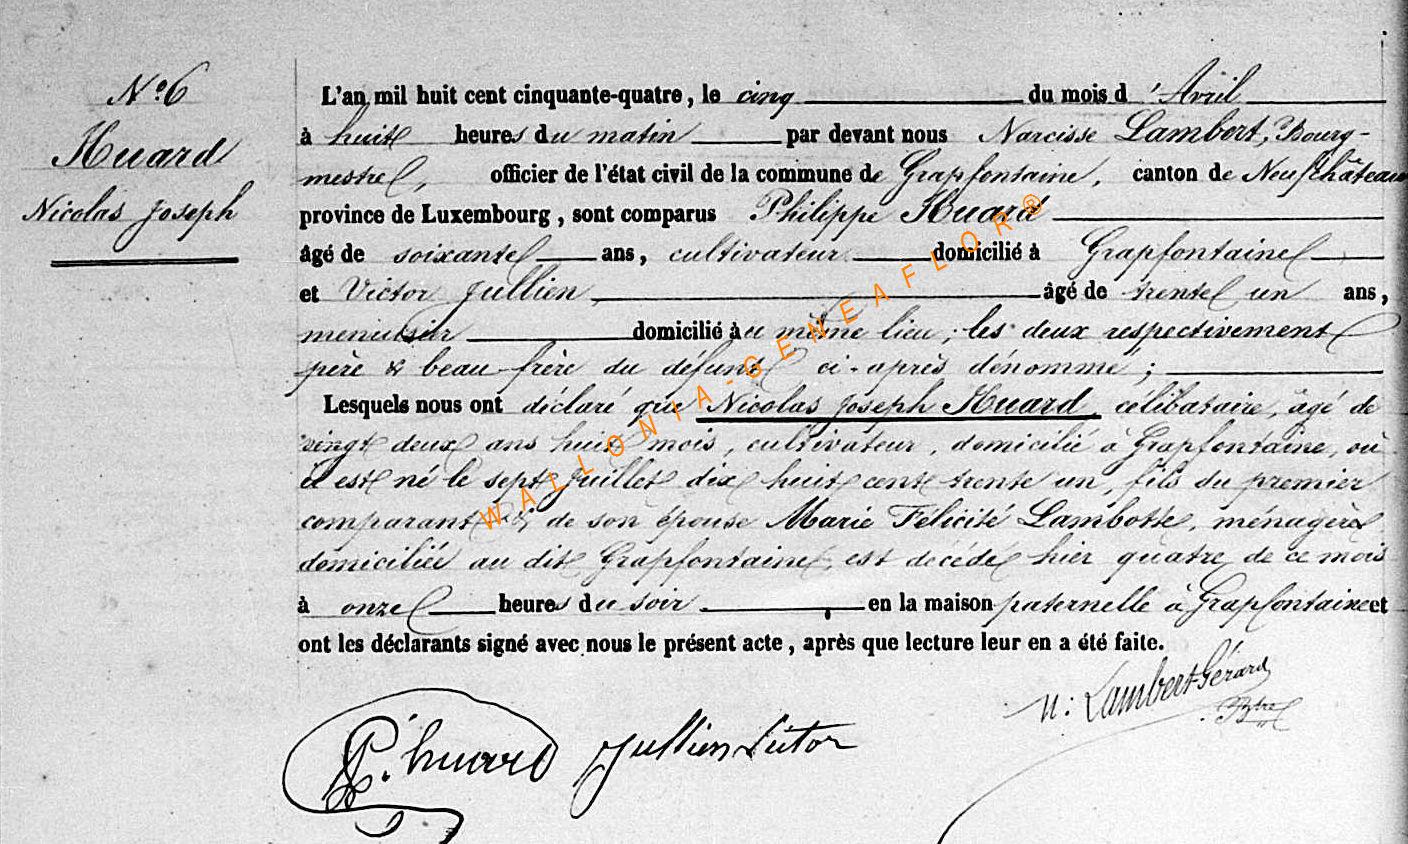 N° 6
Huard
Nicolas Joseph
L'an mil huit cent cinquante-quatre, le cinq du mois d'Avril
à huit heures du matin par devant nous Narcisse Lambert, Bourg-
mestre, officier de l'état civil de la commune de Grapfontaine, canton de Neufchâteau
province de Luxembourg, sont comparus Philippe Huard
âgé de soixante ans, cultivateur domicilié à Grapfontaine
et Victor Jullien, âgé de trente un ans,
menuisier domicilié au même lieu; les deux respectivement
père & beau-frère du défunt ci-après dénommé;
Lesquels nous ont déclaré que Nicolas Joseph Huard, célibataire, âgé de
vingt deux ans huit mois, cultivateur, domicilié à Grapfontaine, où
il est né le sept Juillet dix huit cent trente un, fils du premier
comparant & de son épouse Marie Félicité Lambotte, ménagère
domiciliée au dit Grapfontaine, est décédé hier quatre de ce mois
à onze heures du soir, en la maison paternelle à Grapfontaine et
ont les déclarants signé avec nous le présent acte, après que lecture leur en a été faite.
N: Lambert-Gérard
Bgtre
P. huard Jullien Victor
WALLONIA-GENEAFLOR®